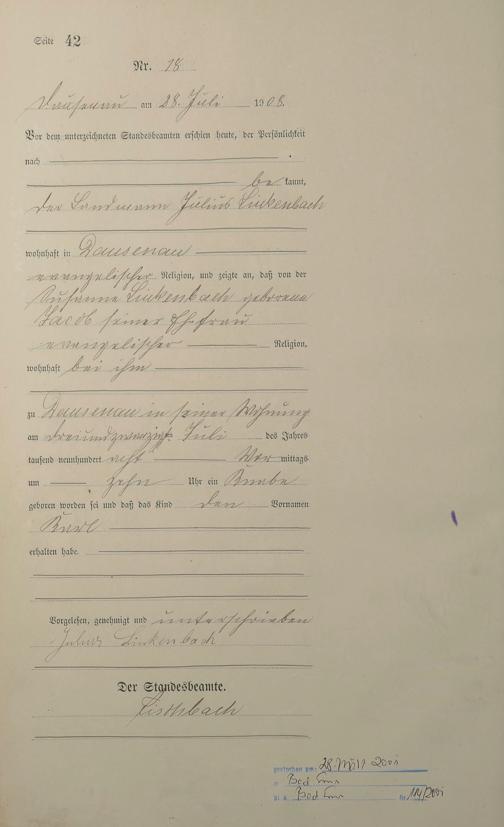 Seite 42
Nr. 18
Dausenau am 28. Juli 1908.
Vor dem unterzeichneten Standesbeamten erschien heute, der Persönlichkeit
nach
bekannt,
der Landmann Julius Linkenbach
wohnhaft in Dausenau
evangelischer Religion, und zeigte an, daß von der
Susanne Linkenbach geborene
Jacob seiner Ehefrau
evangelischer Religion,
wohnhaft bei ihm
zu Dausenau in seiner Wohnung
am dreiundzwanzigst. Juli des Jahres
tausend neunhundert acht Vormittags
um zehn Uhr ein Knabe
geboren worden sei und daß das Kind den Vornamen
Karl
erhalten habe.
Vorgelesen, genehmigt und unterschrieben
Julius Linkenbach
Der Standesbeamte.
gestorben am: 28. 2001
Bad Ems
Bad Ems Nr. 114/2001